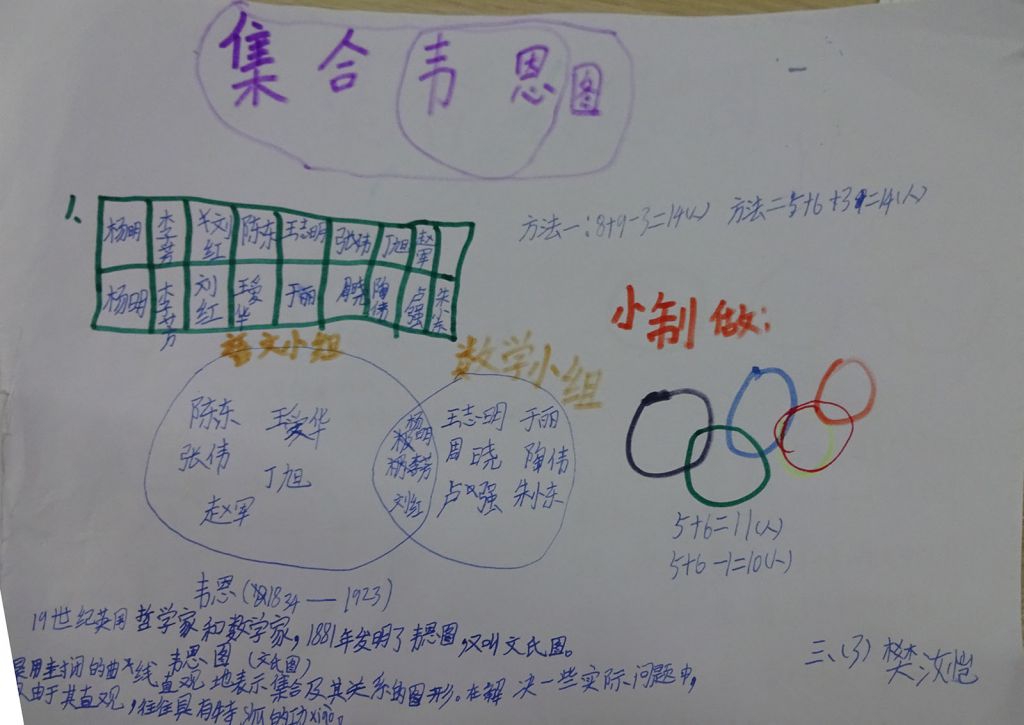 集合韦恩图
1、
杨明 李芳 刘红 陈东 王志明 张伟 丁旭 赵军
杨明 李芳 刘红 王爱华 于丽 周晓 陶伟 卢强 朱小东
方法一:8+9-3=14(人) 方法二5+6+3=14(人)
小制做:
语文小组 数学小组
陈东 王爱华 杨明 王志明 于丽
张伟 丁旭 李芳 周晓 陶伟
赵军 刘红 卢强 朱小东
5+6=11(人)
5+6-1=10(人)
韦恩(1834——1923)
19世纪英国哲学家和数学家,1881年发明了韦恩图,又叫文氏图。
韦恩图(文氏图)
是用封闭的曲线直观地表示集合及其关系的图形。在解决一些实际问题中,
又由于其直观,往往具有特的功xiào。
三、(3)樊汝恺